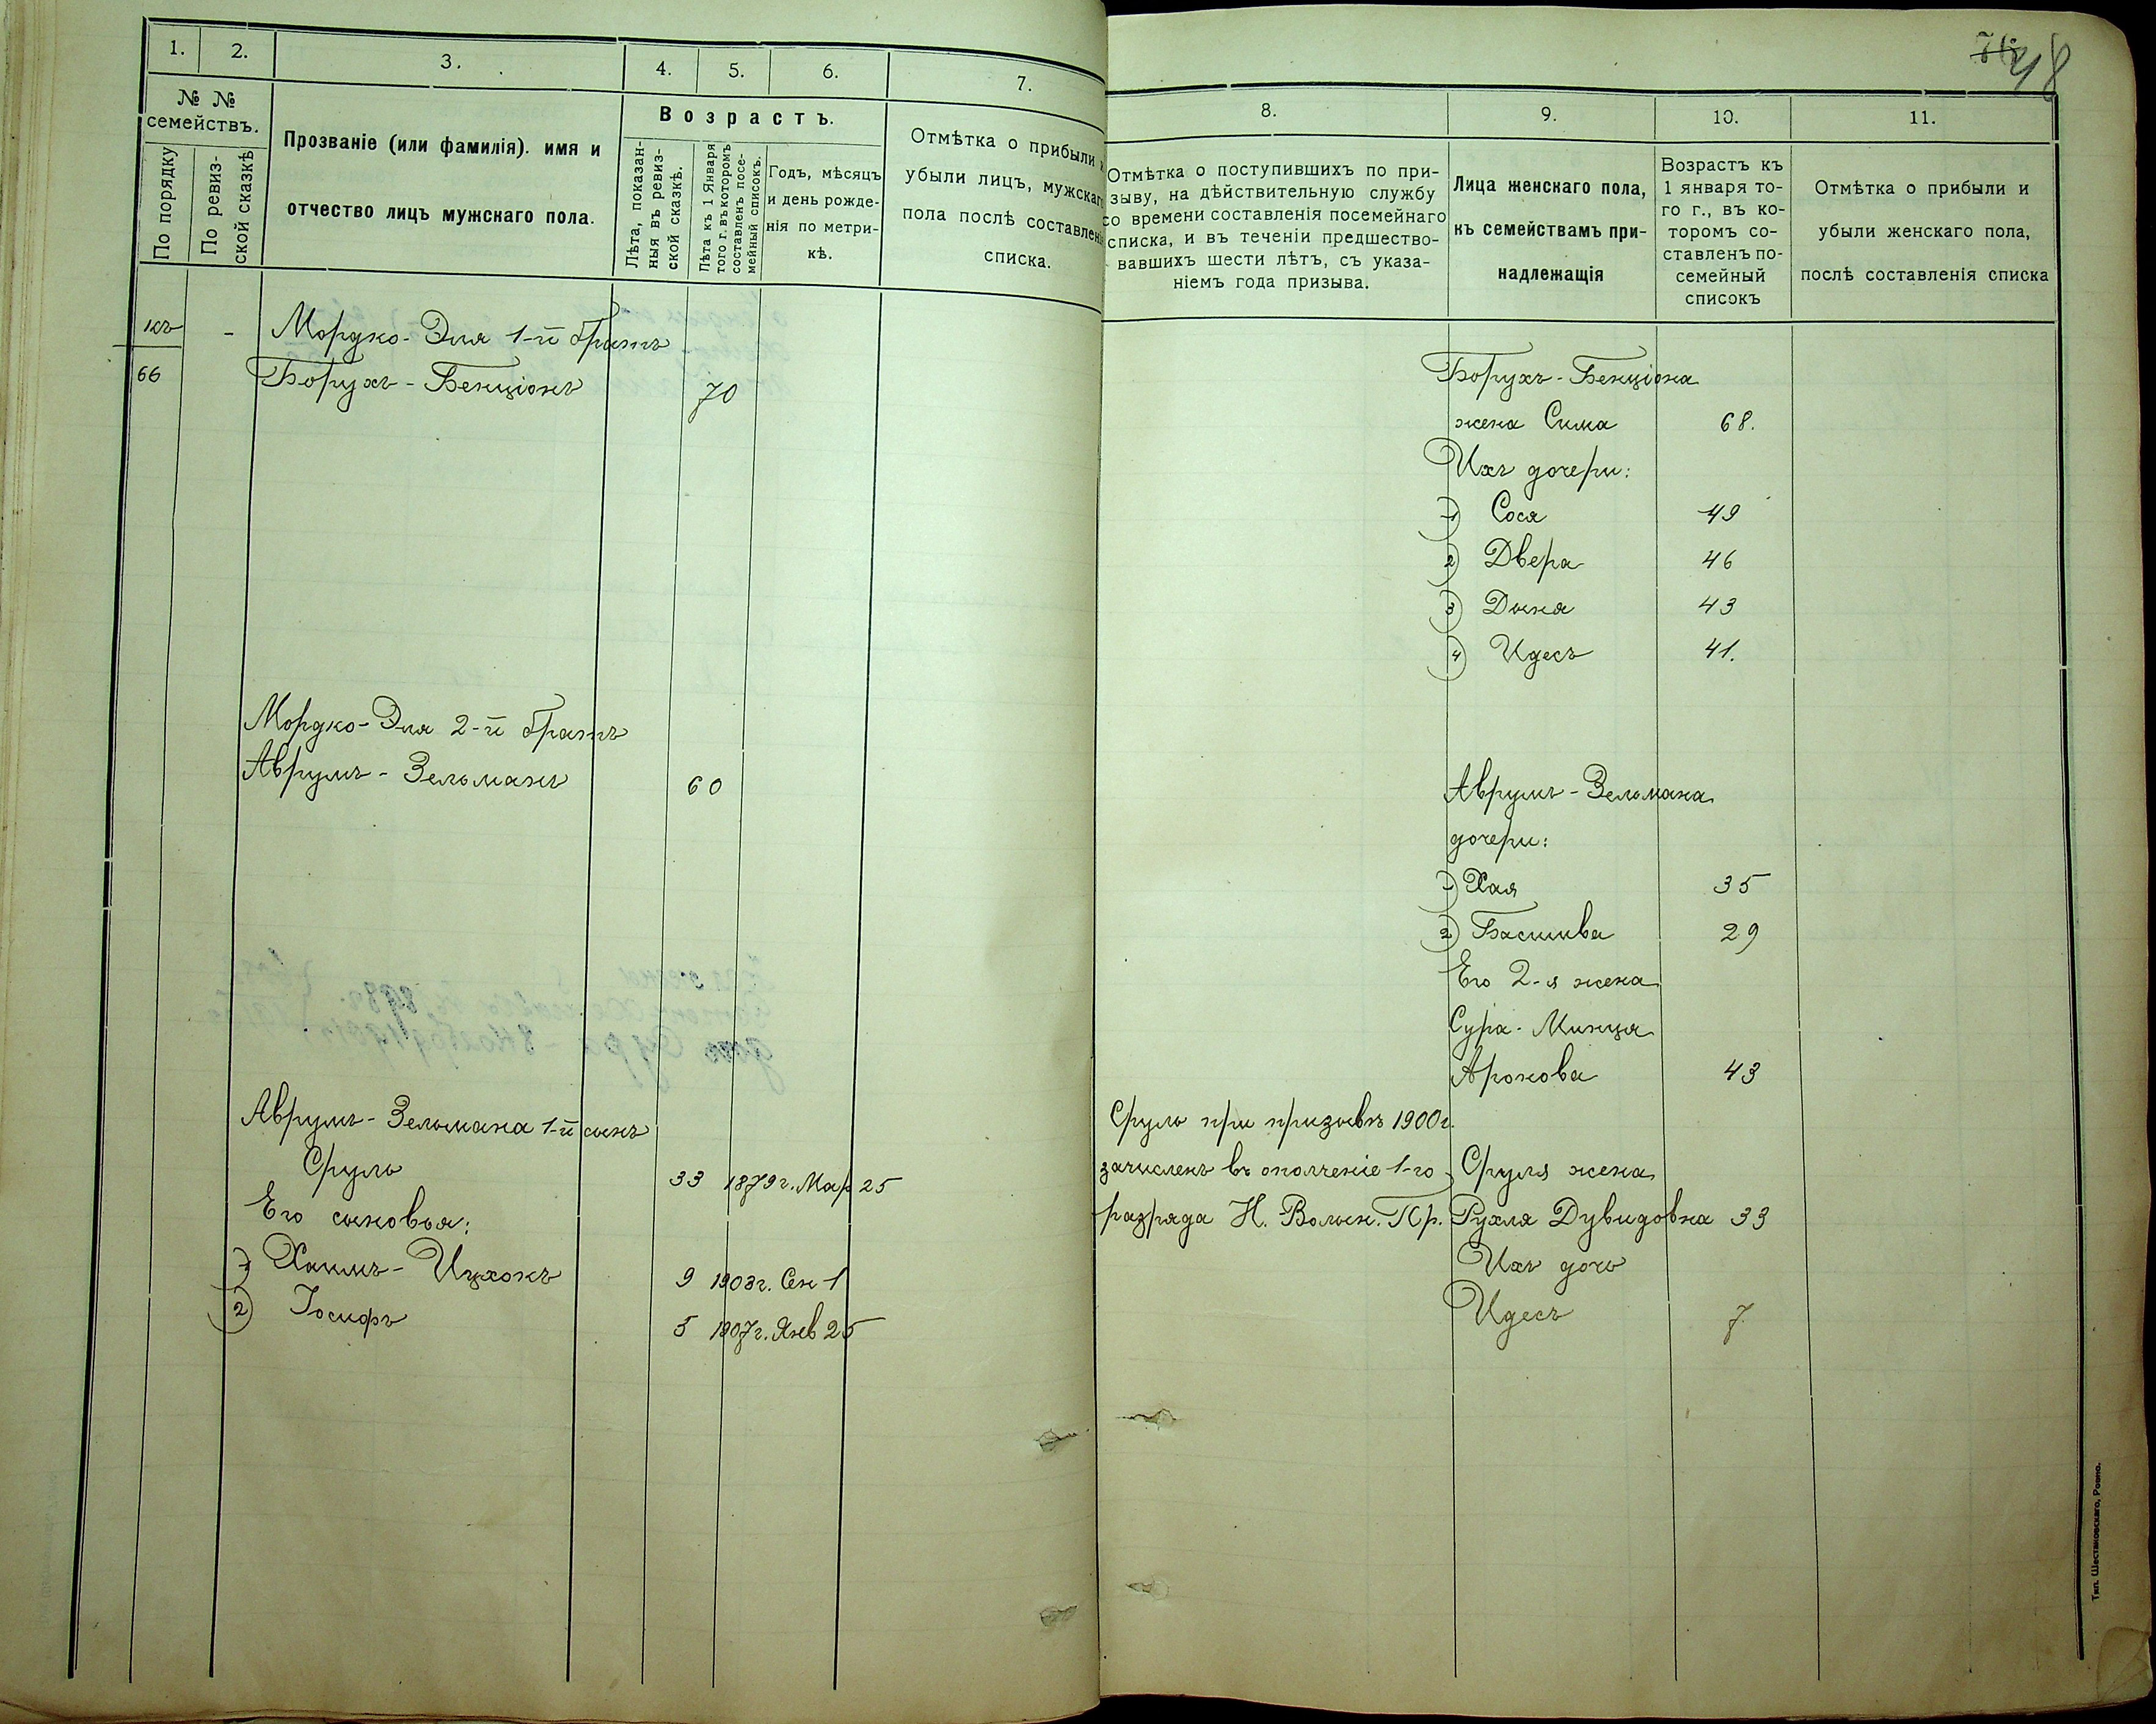 1.
2.
3.
4.
5.
6.
7.
№ №
семействъ.
По порядку
По ревиз-
ской сказкѣ
Прозваніе (или фамилія). имя и
отчество лицъ мужскаго пола.
Возрастъ.
Лѣта, показан-
ныя въ ревиз-
ской сказкѣ.
Лѣта къ 1 Января
того г. въ которомъ
составленъ посе-
мейный списокъ.
Годъ, мѣсяцъ
и день рожде-
нія по метри-
кѣ.
Отмѣтка о прибыли и
убыли лицъ, мужскаго
пола послѣ составленія
списка.
къ - Мордко-Эля 1-й братъ
66 Борухъ-Бенціонъ 70
Мордко-Эля 2-й братъ
Аврумъ-Зельманъ 60
Аврумъ-Зельмана 1-й сынъ
Сруль 33 1879г. Мар 25
Его сыновья:
1) Хаимъ-Ицхокъ 9 1903г. Сен 1
2) Іосифъ 5 1907г. Янв 25
48
8.
9.
10.
11.
Отмѣтка о поступившихъ по при-
зыву, на дѣйствительную службу
со времени составленія посемейнаго
списка, и въ теченіи предшество-
вавшихъ шести лѣтъ, съ указа-
ніемъ года призыва.
Лица женскаго пола,
къ семействамъ при-
надлежащія
Возрастъ къ
1 января то-
го г., въ ко-
торомъ со-
ставленъ по-
семейный
списокъ
Отмѣтка о прибыли и
убыли женскаго пола,
послѣ составленія списка
Борухъ-Бенціона
жена Сима 68.
Ихъ дочери:
1) Сося 49
2) Двера 46
3) Дыня 43
4) Идесъ 41.
Аврумъ-Зельмана
дочери:
1) Хая 35
2) Басшива 29
Его 2-я жена
Сура-Минця
Аронова 43
Сруль при призывѣ 1900г.
зачисленъ въ ополченіе 1-го
разряда Н. Волын. Пр.
Сруля жена
Рухля Дувидовна 33
Ихъ дочь
Идесъ 7
Тип. Шестаковскаго, Ровно.